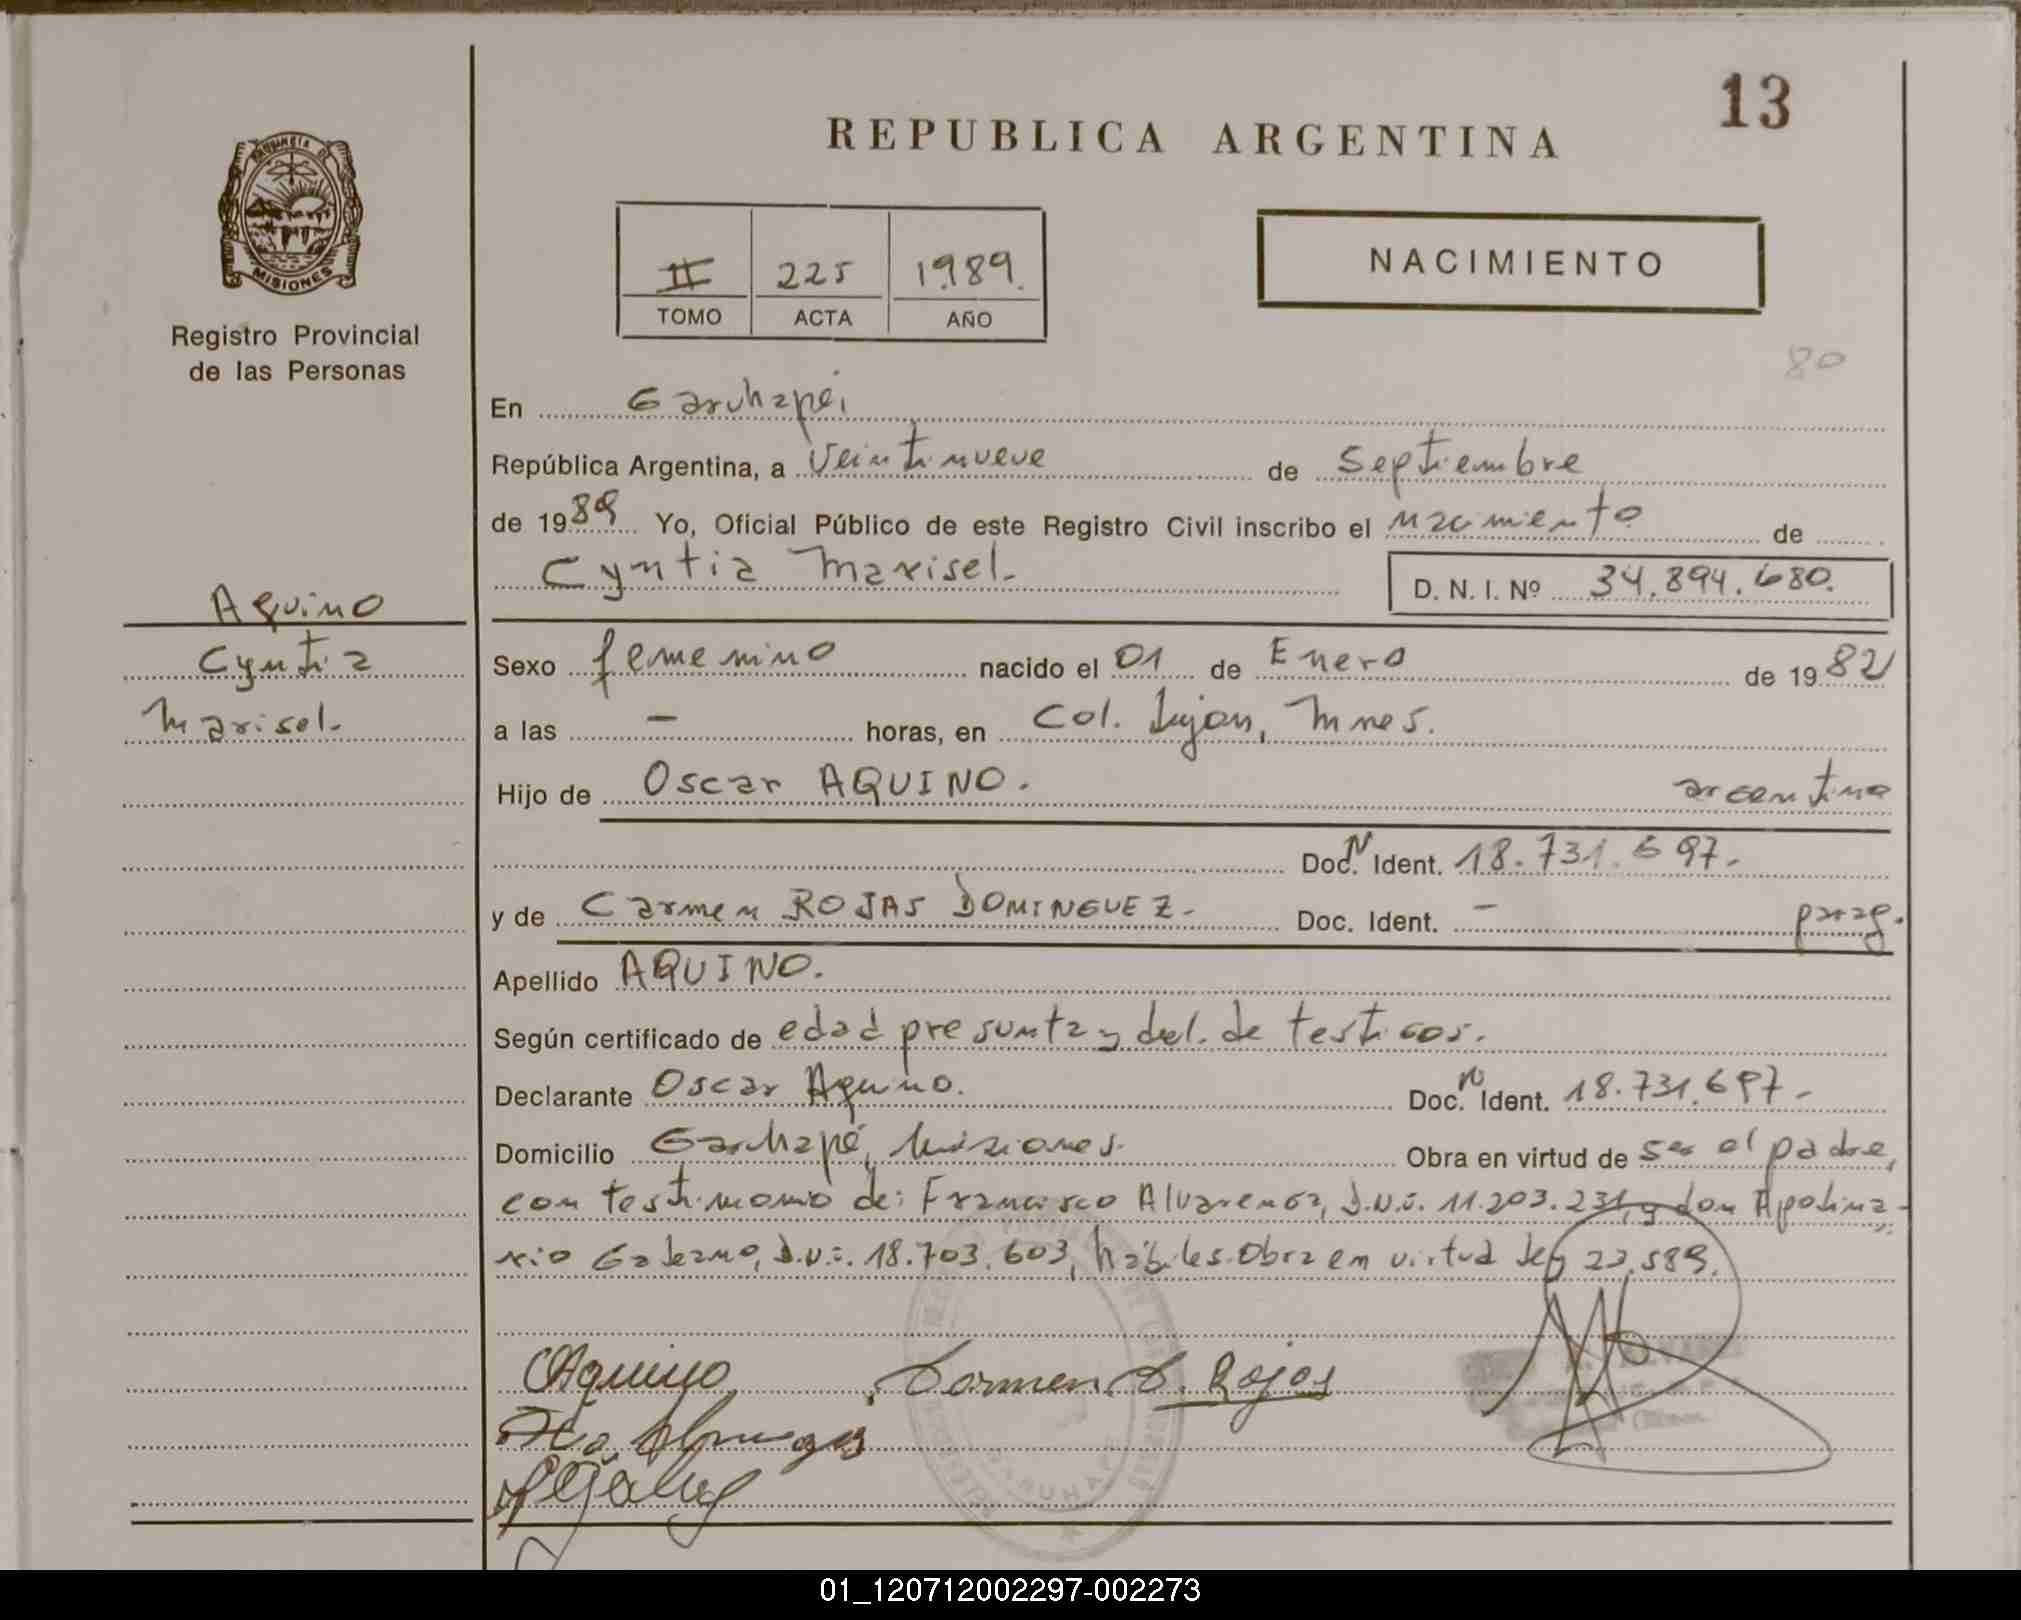 13
REPUBLICA ARGENTINA
MISIONES
Registro Provincial
de las Personas
II 225 1989.
TOMO ACTA AÑO
NACIMIENTO
80
En Garuhapé,
República Argentina, a Veintinueve de Septiembre
de 1989 Yo, Oficial Público de este Registro Civil inscribo el nacimiento de
Cyntia Marisel.-
D. N. I. Nº 34.894.680.
Aquino
Cyntia
Marisel.-
Sexo femenino nacido el 01 de Enero de 1982
a las — horas, en Col. Lujan, Mnes.
Hijo de Oscar AQUINO. argentino
Doc. N Ident. 18.731.697.-
y de Carmen ROJAS DOMINGUEZ.- Doc. Ident. — parag.
Apellido AQUINO.
Según certificado de edad presunta y decl. de testigos.
Declarante Oscar Aquino. Doc. N Ident. 18.731.697.-
Domicilio Garuhapé, Misiones. Obra en virtud de ser el padre,
con testimonio de: Francisco Alvarenga, D.N.i. 11.203.231, y don Apolina-
rio Galeano, D.N.i. 18.703.603, hábiles. Obra en virtud Ley 23.589.
OAquino Carmen D. Rojas
GARUHAPE
01_120712002297-002273